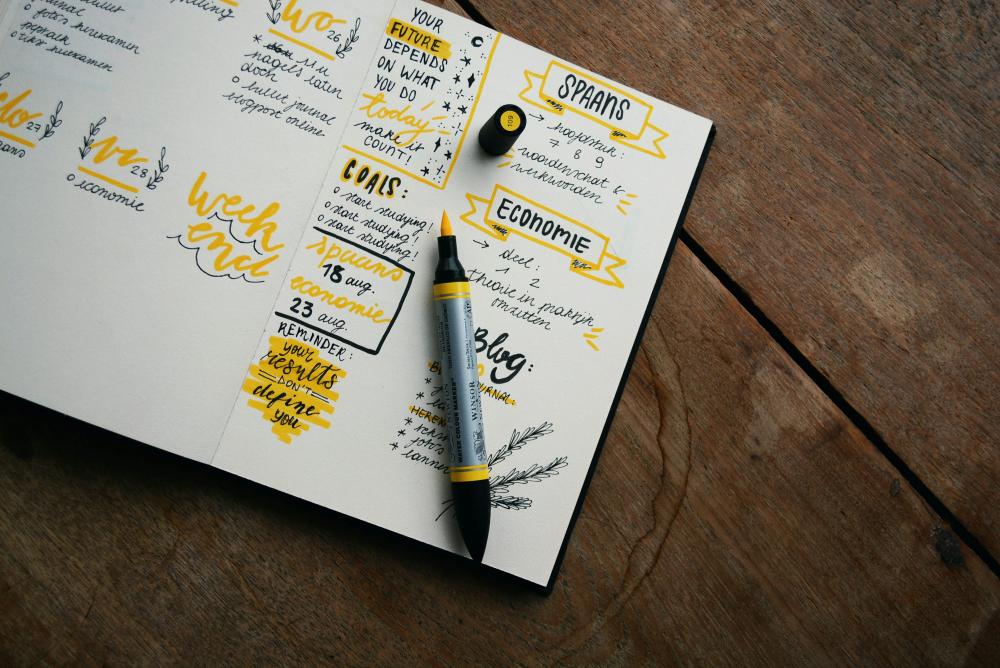 jots herexamen
herexamen
wo 26
* uu
nagels laten
doen
o bullet journal
blogpost online
do 27
vr 28
o economie
week
end
YOUR
FUTURE
DEPENDS
ON WHAT
YOU DO
today
make it
COUNT!
GOALS:
o start studying!
o start studying!
o start studying!
spaans
18 aug.
economie
23 aug.
REMINDER:
your
results
DON'T
define
you
SPAANS
→ hoofdstuk:
7 8 9
woordenschat &
werkwoorden
ECONOMIE
→ deel:
1 2
theorie in praktijk
omzetten
Blog:
109
WATER COLOUR MARKER
WINSOR